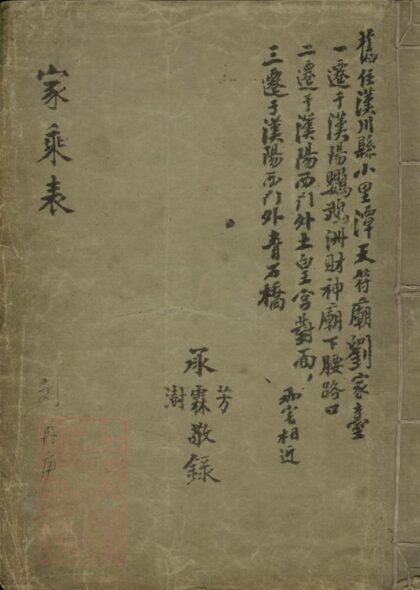 舊住漢川縣小里潭天符廟劉家臺
一遷于漢陽鸚鵡洲財神廟下腰路口
二遷于漢陽西门外土皇宮對面，宅相近
三遷于漢陽西门外青石橋
芳
承霖敬錄
澍
家乘表
刘丹